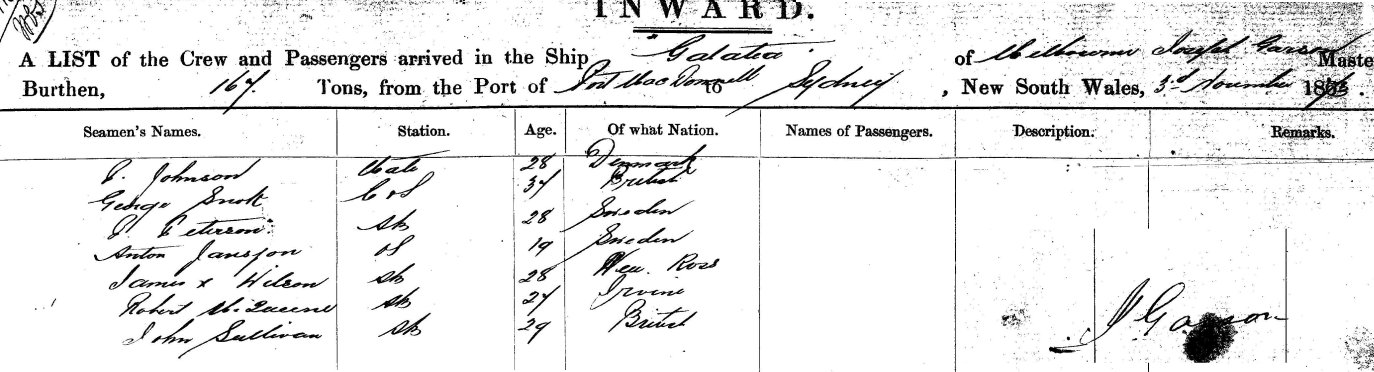 INWARD.
A LIST of the Crew and Passengers arrived in the Ship "Galatea" of Melbourne Joseph Garson Maste
Burthen, 167 Tons, from the Port of Port MacDonnell to Sydney, New South Wales, 3rd November 18
Seamen's Names. Station. Age. Of what Nation. Names of Passengers. Description. Remarks.
Johnson Mate 28 Denmark
George 37 British
Peterson 28 Sweden
Anton Jansson OS 19 Sweden
James x Wilson 28 New Ross
Robert McQueene 27 Irvine
John Sullivan 29 British
J Garson